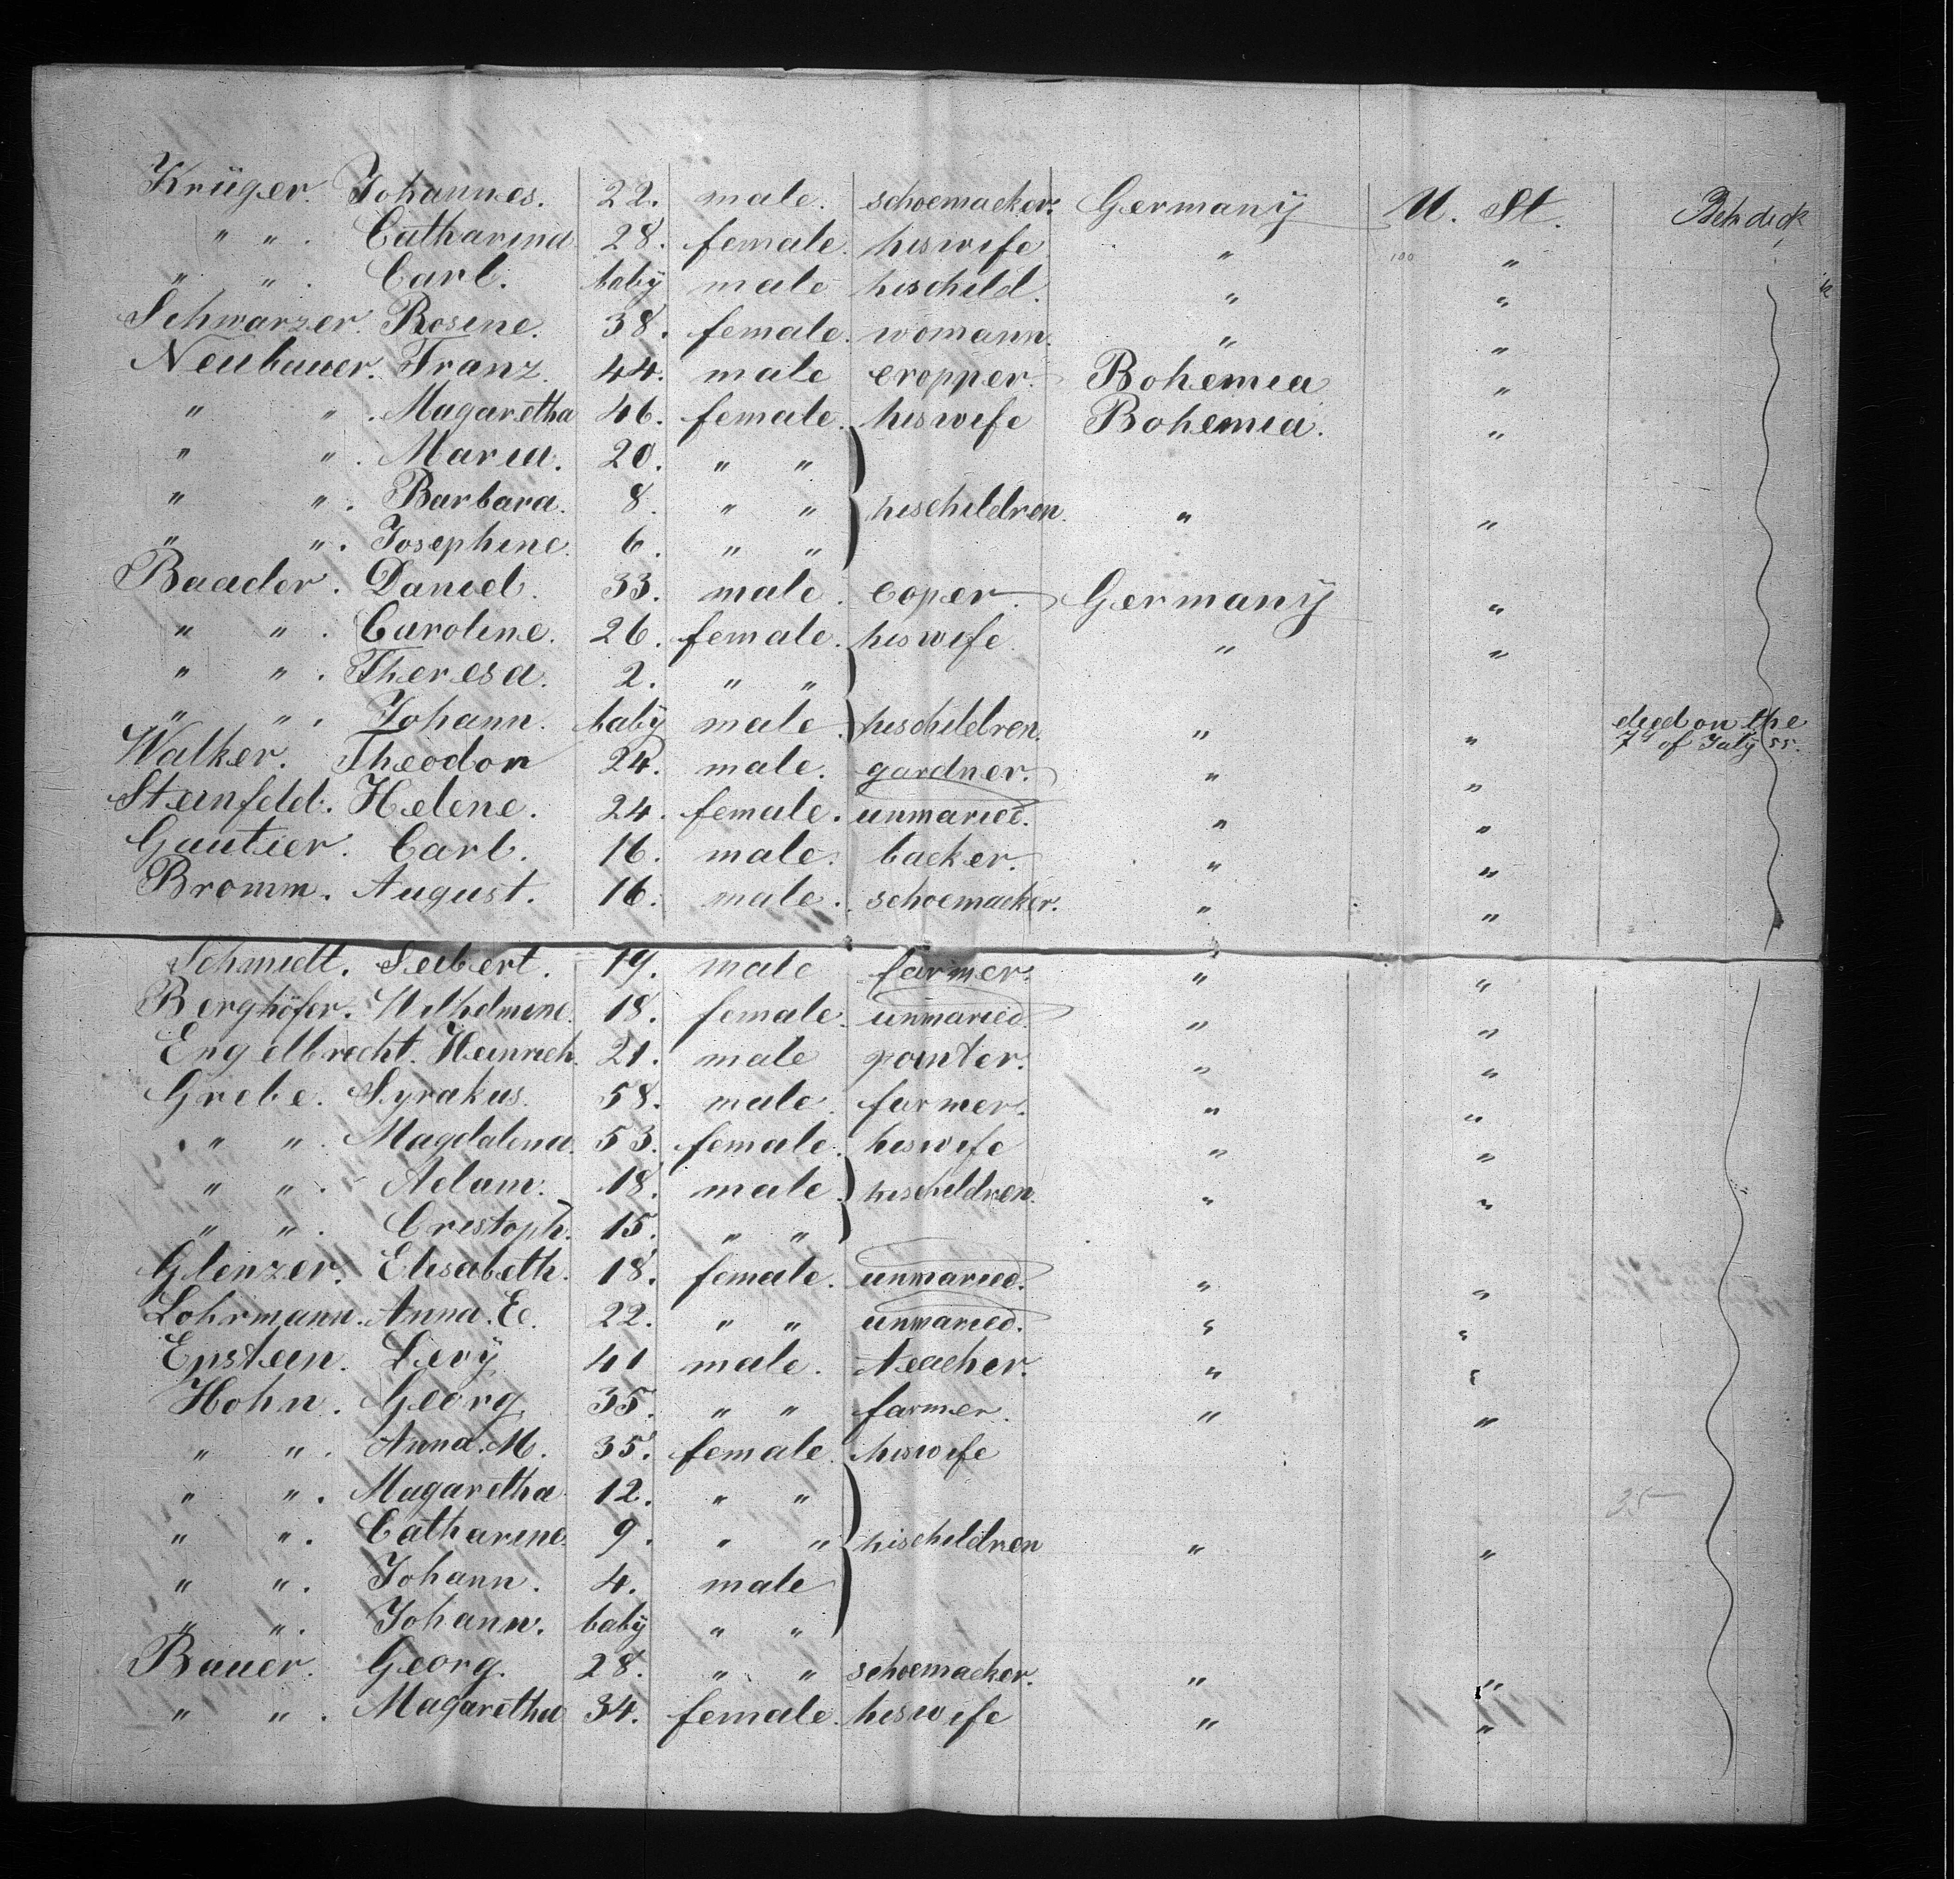 Krüger. Johannes. 22. male. schoemacker. Germany U. St. Betw deck
" " . Catharina 28. female. hiswife " "
" " . Carl. baby male hischild. " "
Schwarzer. Rosine. 38. female. womann. " "
Neubauer. Franz. 44. male cropper. Bohemia "
" " . Magaretha 46. female. hiswife Bohemia. "
" " . Maria. 20. " "
" " . Barbara. 8. " " hischildren. " "
" " . Josephine. 6. " "
Baader. Daniel. 33. male. coper. Germany "
" " . Caroline. 26. female. hiswife " "
" " . Theresa. 2. " "
" " . Johann. baby male. hischildren. " " died on the 7th of July 55.
Walker. Theodor 24. male. gardner. " "
Steinfeld. Helene. 24. female. unmaried. " "
Gautier. Carl. 16. male. backer. " "
Bromm. August. 16. male. schoemacker. " "
Schmidt. Seibert. 19. male farmer. " "
Berghöfer. Wilhelmine. 18. female. unmaried. " "
Engelbrecht. Heinrich. 21. male pointer. " "
Grebe. Syrakus. 58. male. farmer. " "
" " . Magdalena. 53. female. hiswife " "
" " . Adam. 18. male. hischildren. " "
" " . Cristoph. 15. " "
Glenzer. Elisabeth. 18. female. unmaried. " "
Lohrmann. Anna. E. 22. " " unmaried. " "
Epstein. Levy 41 male. teacher. " "
Hohn. Georg. 35. " " farmer. " "
" " . Anna. M. 35. female. hiswife
" " . Magaretha 12. " " 35
" " . Catharine. 9. " " hischildren " "
" " . Johann. 4. male
" " . Johann. baby " "
Bauer. Georg. 28. " " schoemacker. " "
" " . Magaretha 34. female. hiswife " "